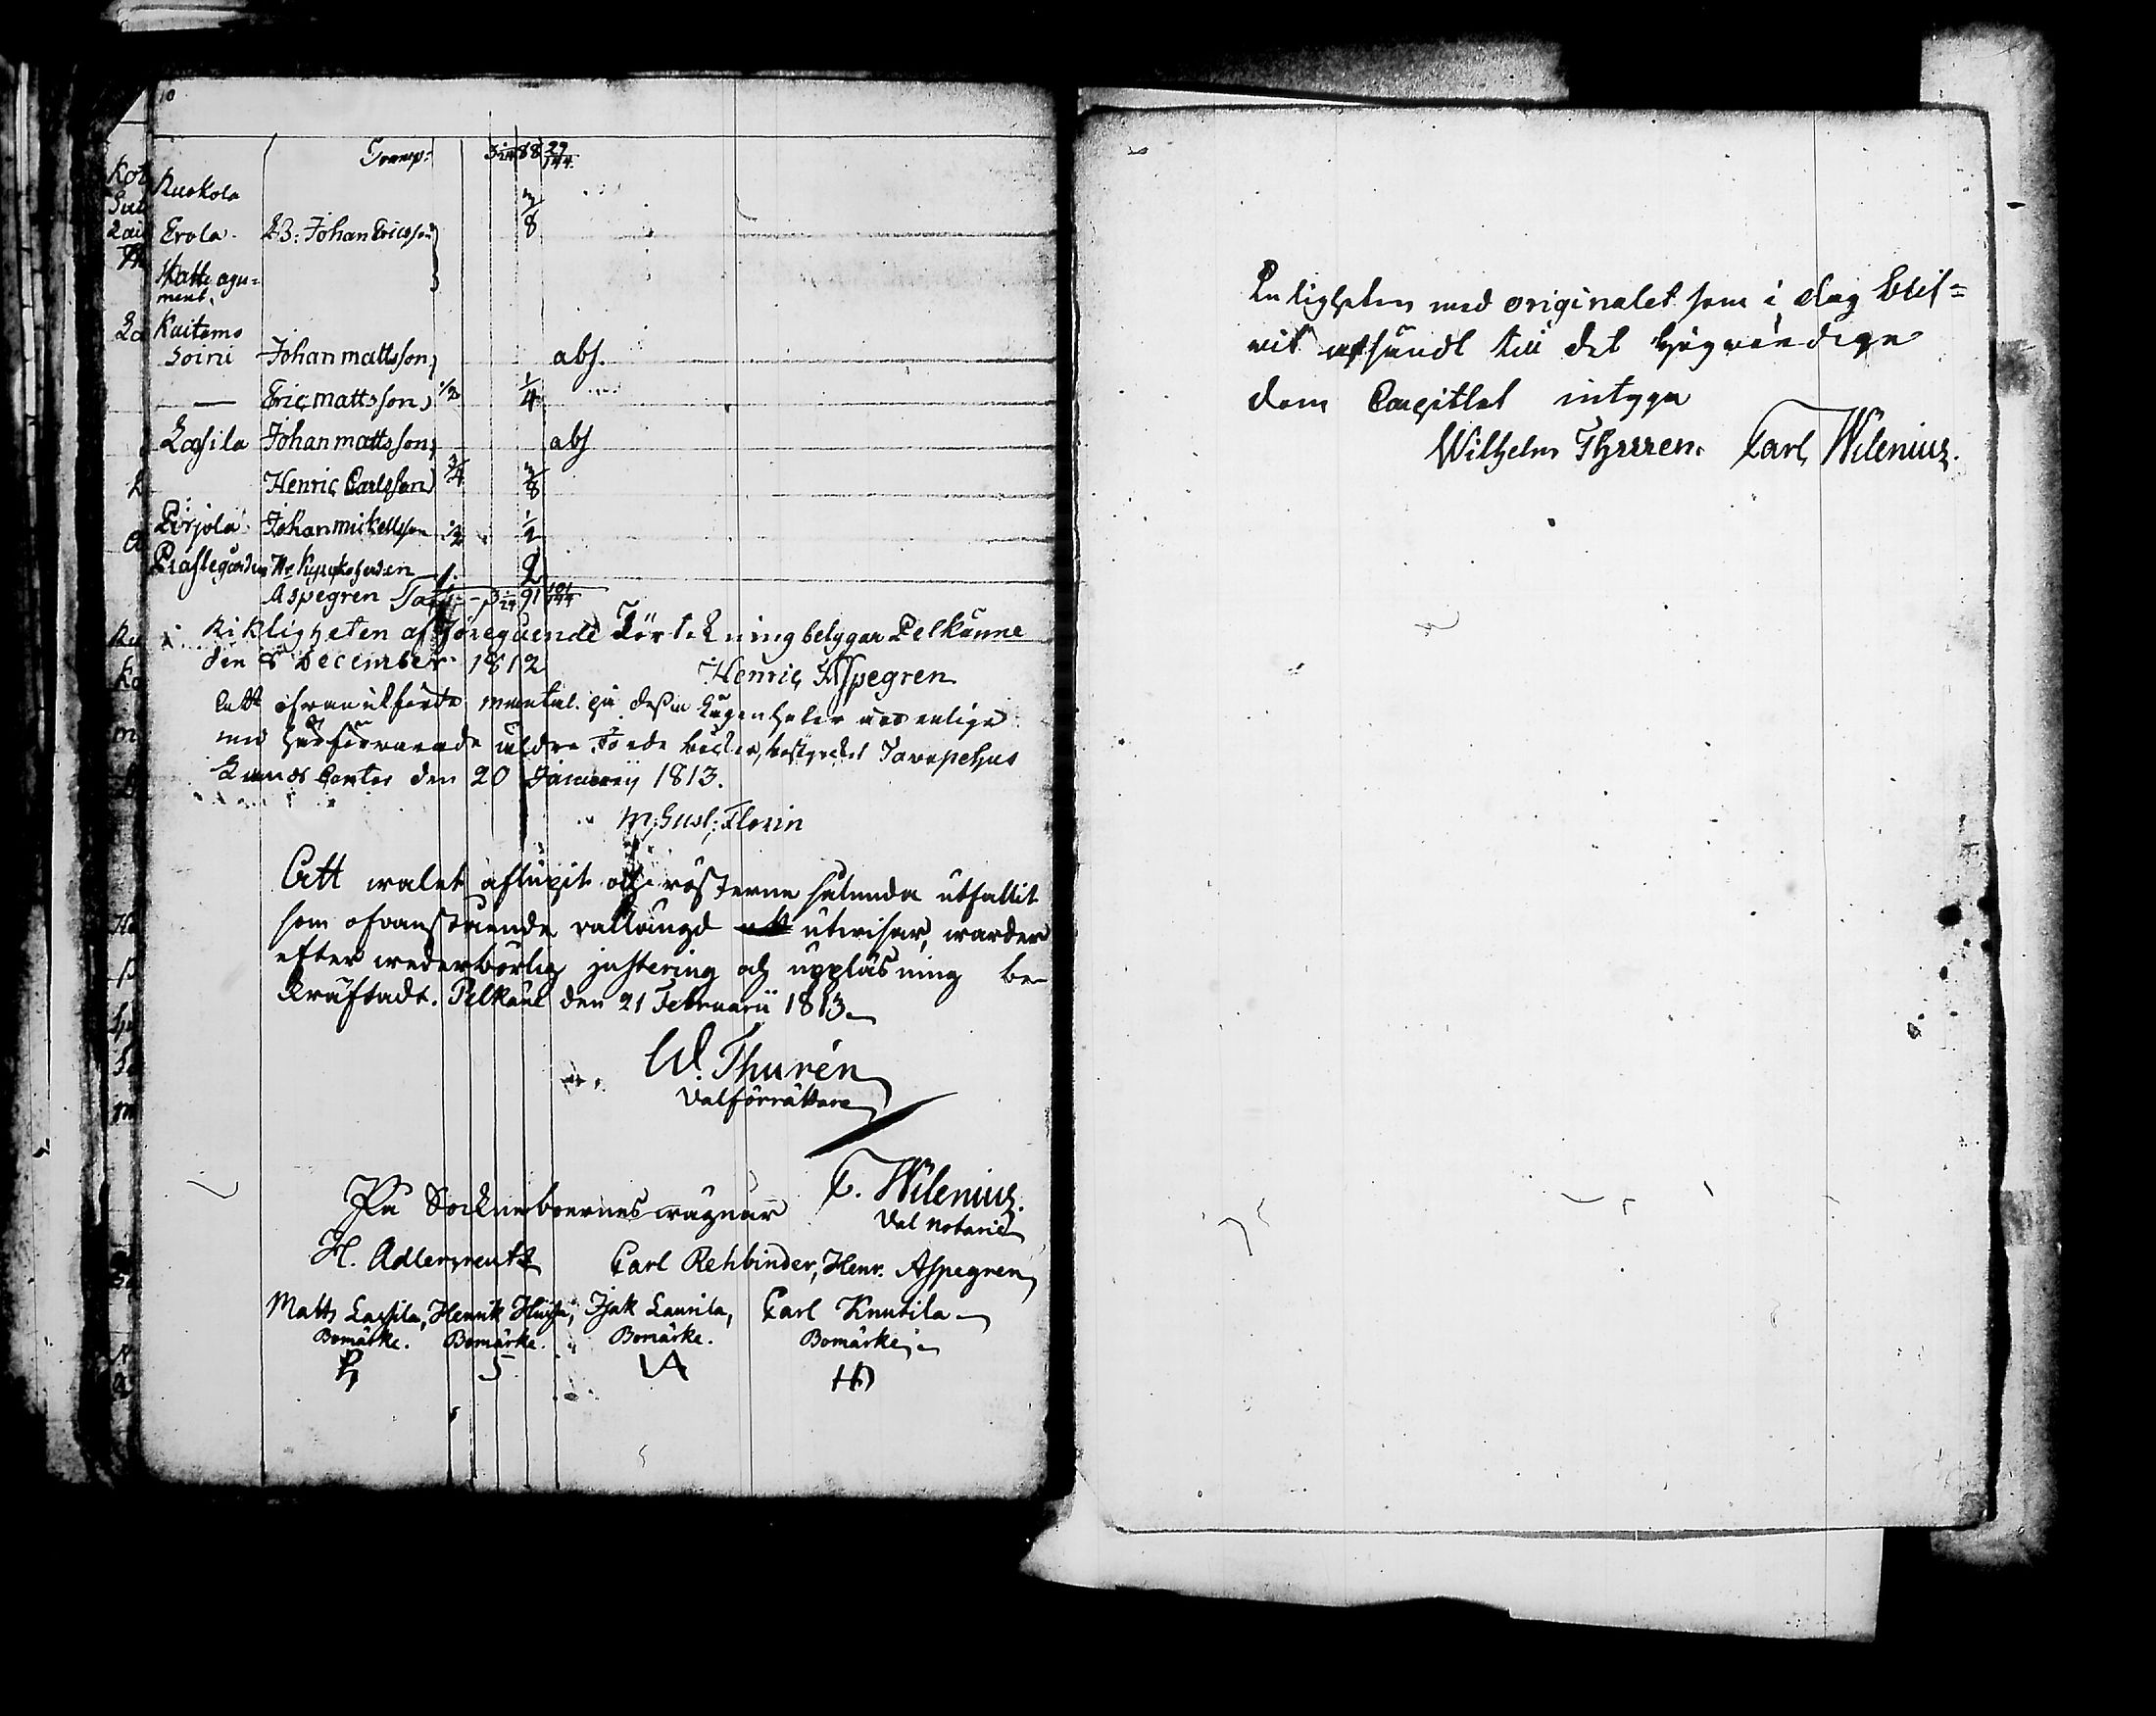 10
Transp: 3 1/24 88 29/144
Kuokola
Erola. LB: Johan Ericsson 3/8
Skatte agu=
ment.
Kaitemo
Soini Johan mattsson abs.
— Eric mattsson 1/2 1/4
Lassila Johan mattsson abs
Henric Carlsson 3/4 3/8
Pirjola Johan mickelsson 1/2 1/2
Prästegården Hr Kyrkoherden 1. 2
Aspegren 3 1/24 91
Riktigheten af föregående Förtekning betygar Pelkänne
den 8 December 1812 Henric Aspegren
Att ofvanutförde mantal på dessa Lägenheter äro enlige
med härförvarande äldre Jorde böcker, bestyrkes Tavastehus
Lands Contor den 20 Januarij 1813.
M: Gust: Florin
Att walet aflupit och rösterne sålunda utfallit
som ofvanstående vallängd utwisar, warder
efter wederbörlig justering och uppläsning be-
kräftadt. Pelkäne den 21 Februarii 1813.
W. Thurén
Valförrättare
C. Wilenius.
Val notarie
På Sockneboernes wägnar
H. Adlercreutz Carl Rehbinder, Henr. Aspegren,
Matts Lassila, Henrik Huiska, Isak Laurila, Carl Knutila
Bomärke. Bomärke. Bomärke. Bomärke
Enligheten med originalet som i dag blif=
vit afsändt till det Högvördige
Dom Capitlet intyga
Wilhelm Thuren. Carl Wilenius.